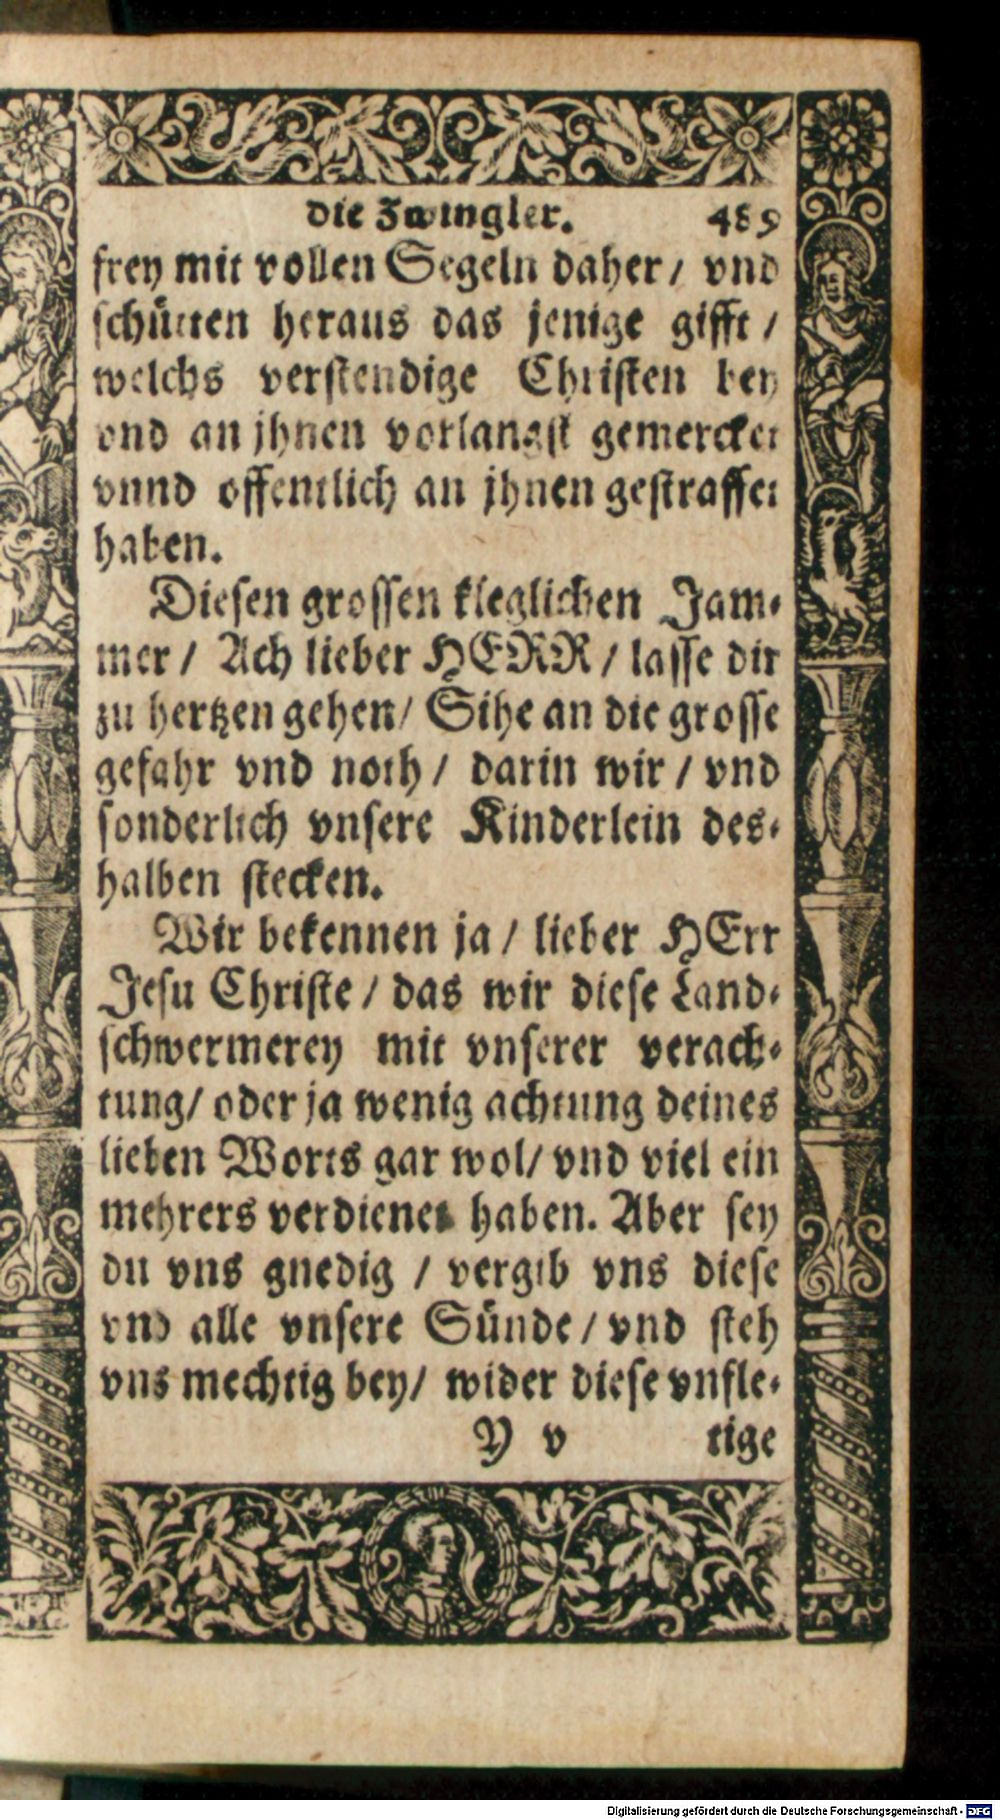 die Zwingler. 489
frey mit vollen Segeln daher / vnd
schütten heraus das jenige gifft /
welchs verstendige Christen bey
vnd an jhnen vorlangst gemercket
vnnd offentlich an jhnen gestraffet
haben.
Diesen grossen kleglichen Jam⸗
mer / Ach lieber HERR / lasse dir
zu hertzen gehen / Sihe an die grosse
gefahr vnd noth / darin wir / vnd
sonderlich vnsere Kinderlein des⸗
halben stecken.
Wir bekennen ja / lieber HErr
Jesu Christe / das wir diese Land⸗
schwermerey mit vnserer verach⸗
tung / oder ja wenig achtung deines
lieben Worts gar wol / vnd viel ein
mehrers verdienet haben. Aber sey
du vns gnedig / vergib vns diese
vnd alle vnsere Sünde / vnd steh
vns mechtig bey / wider diese vnfle⸗
Y v tige
Digitalisierung gefördert durch die Deutsche Forschungsgemeinschaft - DFG